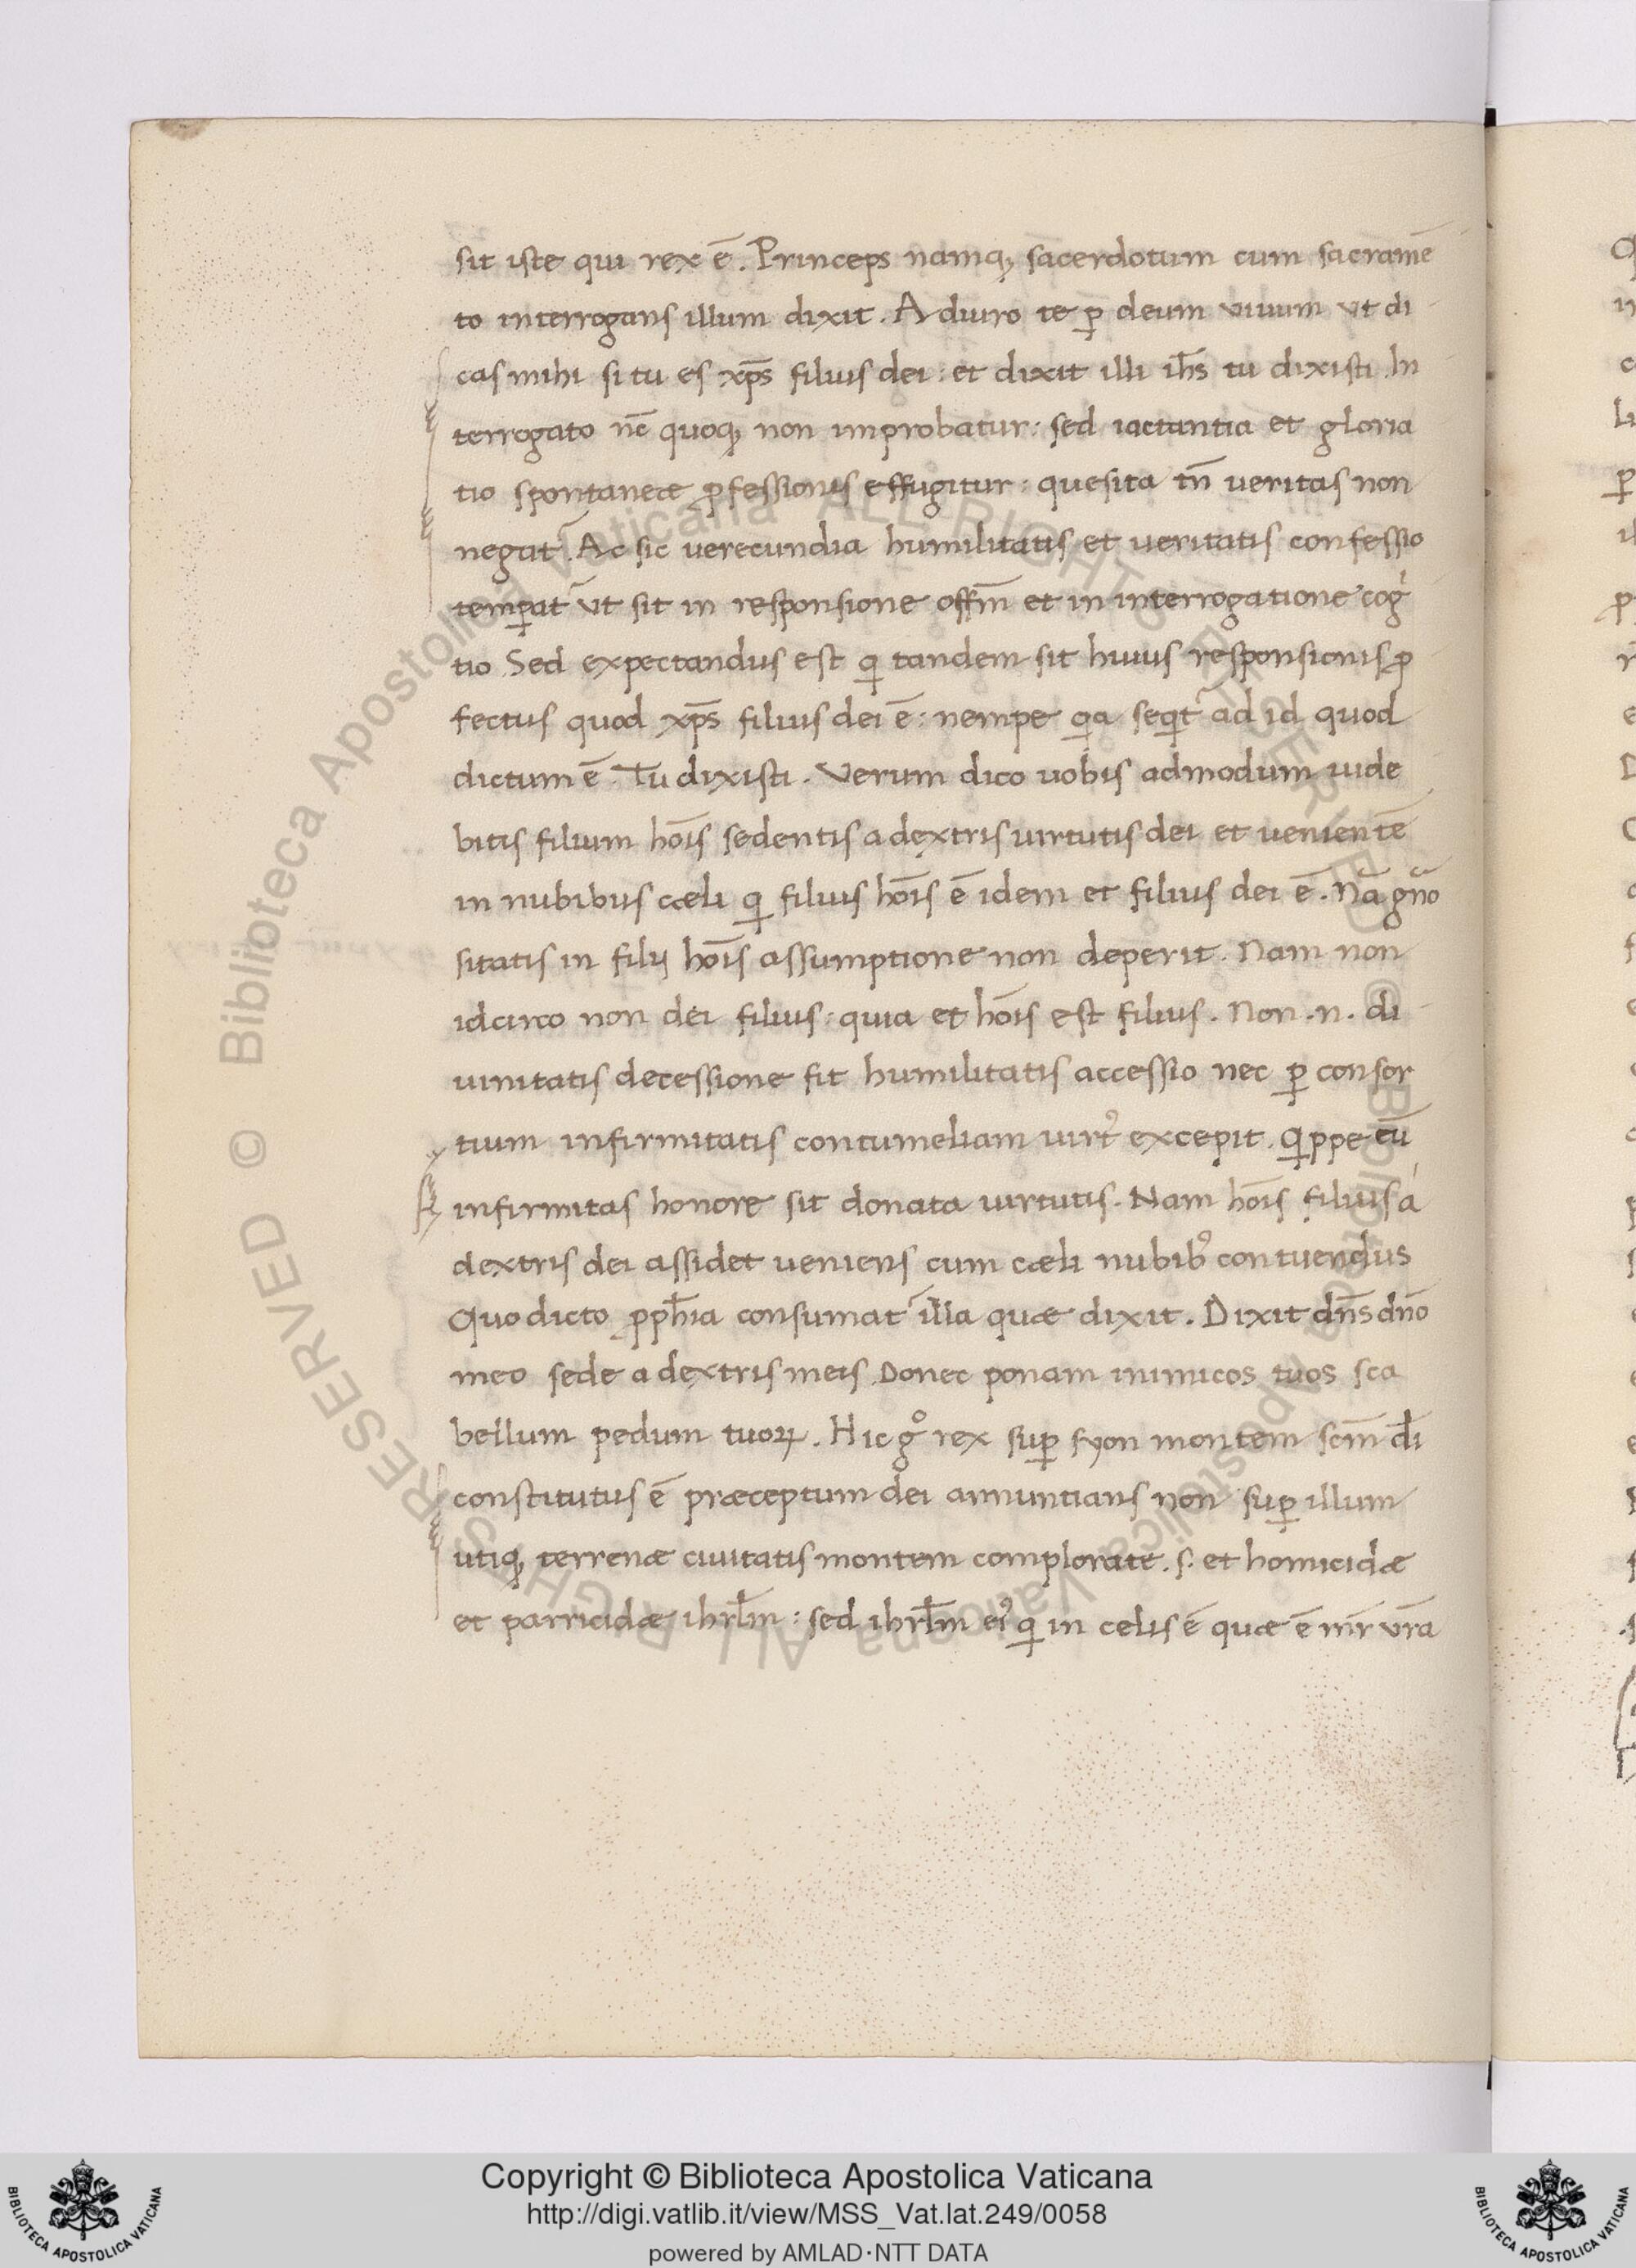 sit iste qui rex ē. Princeps namqꝫ sacerdotum cum sacramē
to interrogans illum dixit. Adiuro te ꝑ deum viuum vt di
cas mihi si tu es xp̄s filius dei: et dixit illi ih̄s tu dixisti. In
terrogato nē quoqꝫ non improbatur: sed iactantia et gloria
tio spontaneæ ꝓfessionis effugitur: quesita tn̄ veritas non
negat᷑. Ac sic uerecundia humilitatis et veritatis confessio
temꝑat᷑ vt sit in responsione offm̄ et in interrogatione cogi
tio Sed expectandus est qͥ tandem sit huius responsionis ꝓ
fectus quod xp̄s filius dei ē: nempe qͥa seqͥt᷑ ad id quod
dictum ē. Tu dixisti. Verum dico uobis admodum uide
bitis filium hōis sedentis a dextris uirtutis dei et uenientē
in nubibus cæli qͥ filius hōis ē idem et filius dei ē. Nā gn̄o
sitatis in filij hōis assumptione non deperit. Nam non
idcirco non dei filius: quia et hōis est filius. Non .n. di
uinitatis decessione fit humilitatis accessio nec ꝑ consor
tium infirmitatis contumeliam uirtꝰ excepit. qͥppe cū
infirmitas honore sit donata uirtutis. Nam hōis filius a
dextris dei assidet ueniens cum cæli nubibꝰ contuendus
Quo dicto ꝓph̄ia consumat᷑ illa quæ dixit. Dixit dn̄s dn̄o
meo sede a dextris meis Donec ponam inimicos tuos sca
bellum pedum tuoꝝ. Hic gͦ rex suꝑ syon montem scm̄ dī
constitutus ē præceptum dei annuntians non suꝑ illum
utiqꝫ terrenæ ciuitatis montem complorate .s. et homicidæ
et parricidæ ihrl̄m: sed ihrl̄m eiꝰ qͥ in celis ē quæ ē mr̄ vr̄a
Biblioteca Apostolica Vaticana ALL RIGHTS RESERVED ©
Biblioteca Apostolica Vaticana ALL RIGHTS RESERVED ©
Copyright © Biblioteca Apostolica Vaticana
http://digi.vatlib.it/view/MSS_Vat.lat.249/0058
powered by AMLAD·NTT DATA
BIBLIOTECA APOSTOLICA VATICANA
BIBLIOTECA APOSTOLICA VATICANA